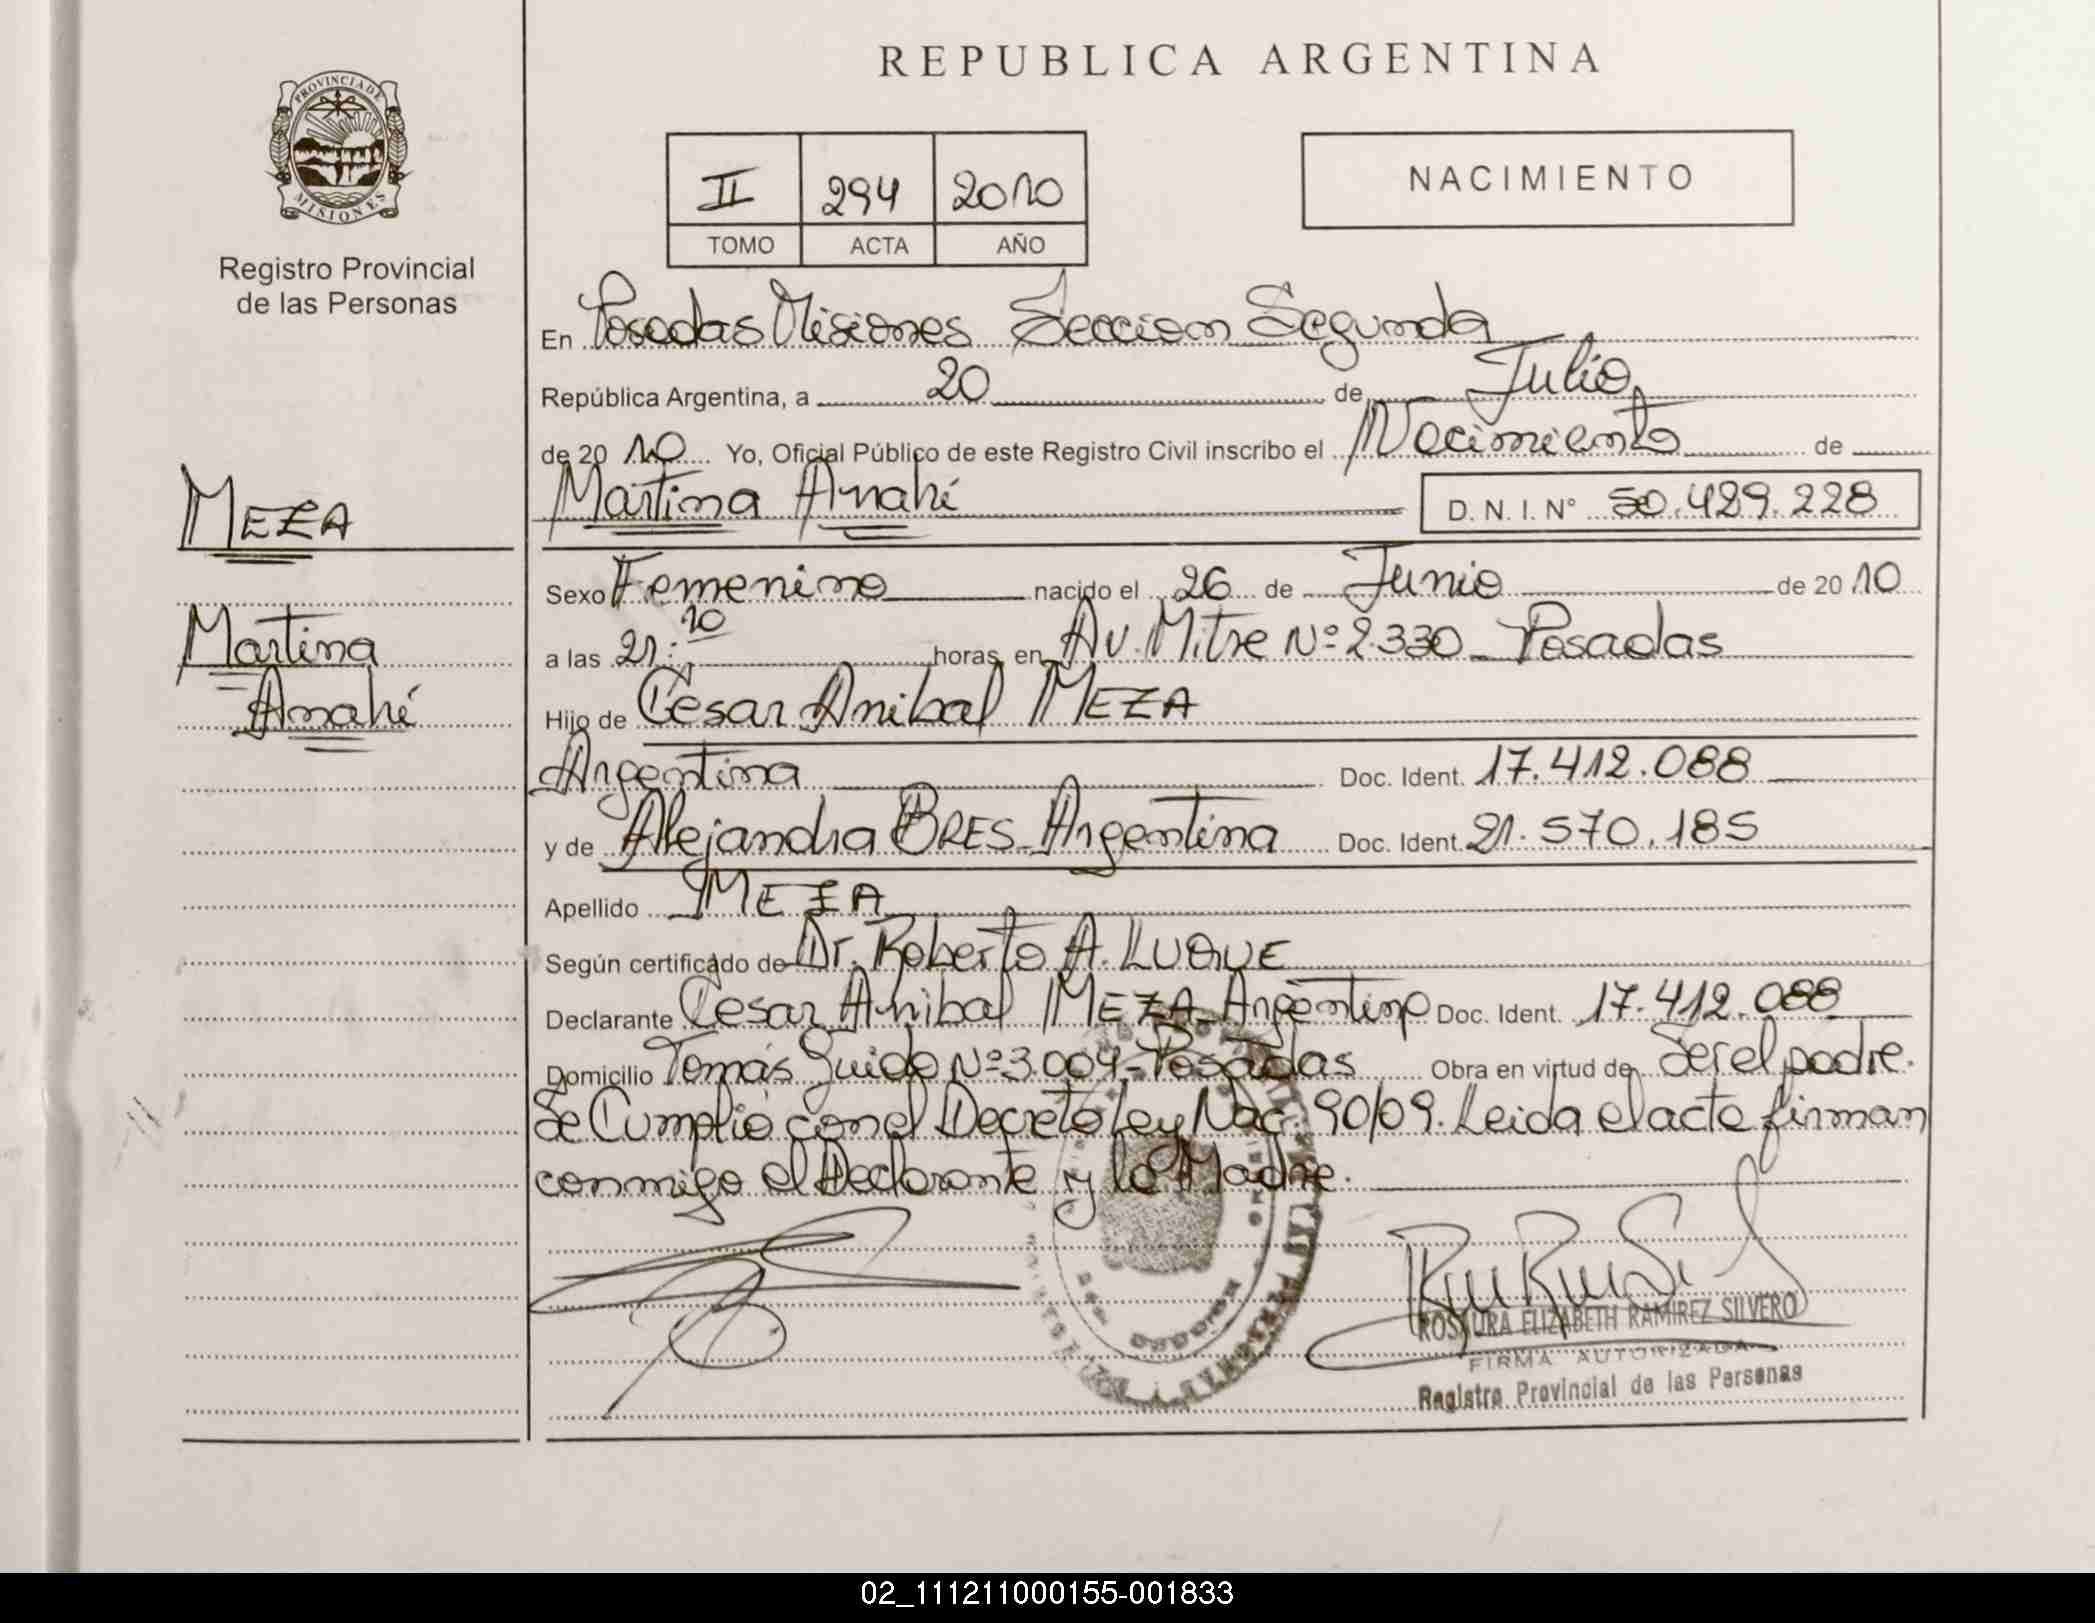 REPUBLICA ARGENTINA
PROVINCIA DE
MISIONES
Registro Provincial
de las Personas
II 294 2010
TOMO ACTA AÑO
NACIMIENTO
En Posadas Misiones Seccion Segunda
República Argentina, a 20 de Julio
de 2010 Yo, Oficial Público de este Registro Civil inscribo el Nacimiento de
MEZA
Martina Anahí D. N. I. N° 50.429.228
Sexo Femenino nacido el 26 de Junio de 2010
Martina
a las 21:10 horas, en Av. Mitre Nº 2.330 - Posadas
Anahí
Hijo de Cesar Anibal MEZA
Argentina Doc. Ident. 17.412.088
y de Alejandra BRES - Argentina Doc. Ident. 21.570.185
Apellido MEZA
Según certificado de Dr. Roberto A. LUQUE
Declarante Cesar Anibal MEZA - Argentino Doc. Ident. 17.412.088
Domicilio Tomás Guido Nº 3.004 - Posadas Obra en virtud de Ser el padre.
Se Cumplió con el Decreto Ley Nac. 90/09. Leida el acta firman
conmigo el Declarante y la Madre.
ROSAURA ELIZABETH RAMIREZ SILVERO
FIRMA AUTORIZADA
Registro Provincial de las Personas
02_111211000155-001833